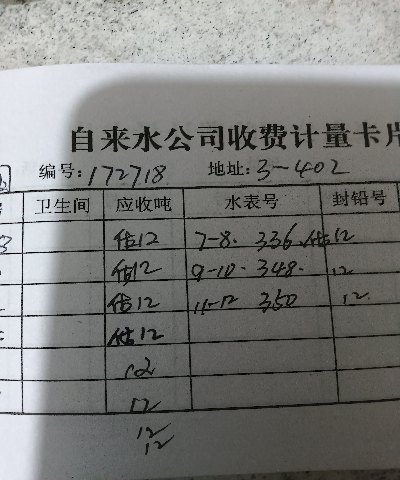 自来水公司收费计量卡片
编号: 172718 地址: 3-402
卫生间 应收吨 水表号 封铅号
估12 7-8. 336. 估12
估12 9-10. 348. 12
估12 11-12 350 12.
估12
12
12
12
12